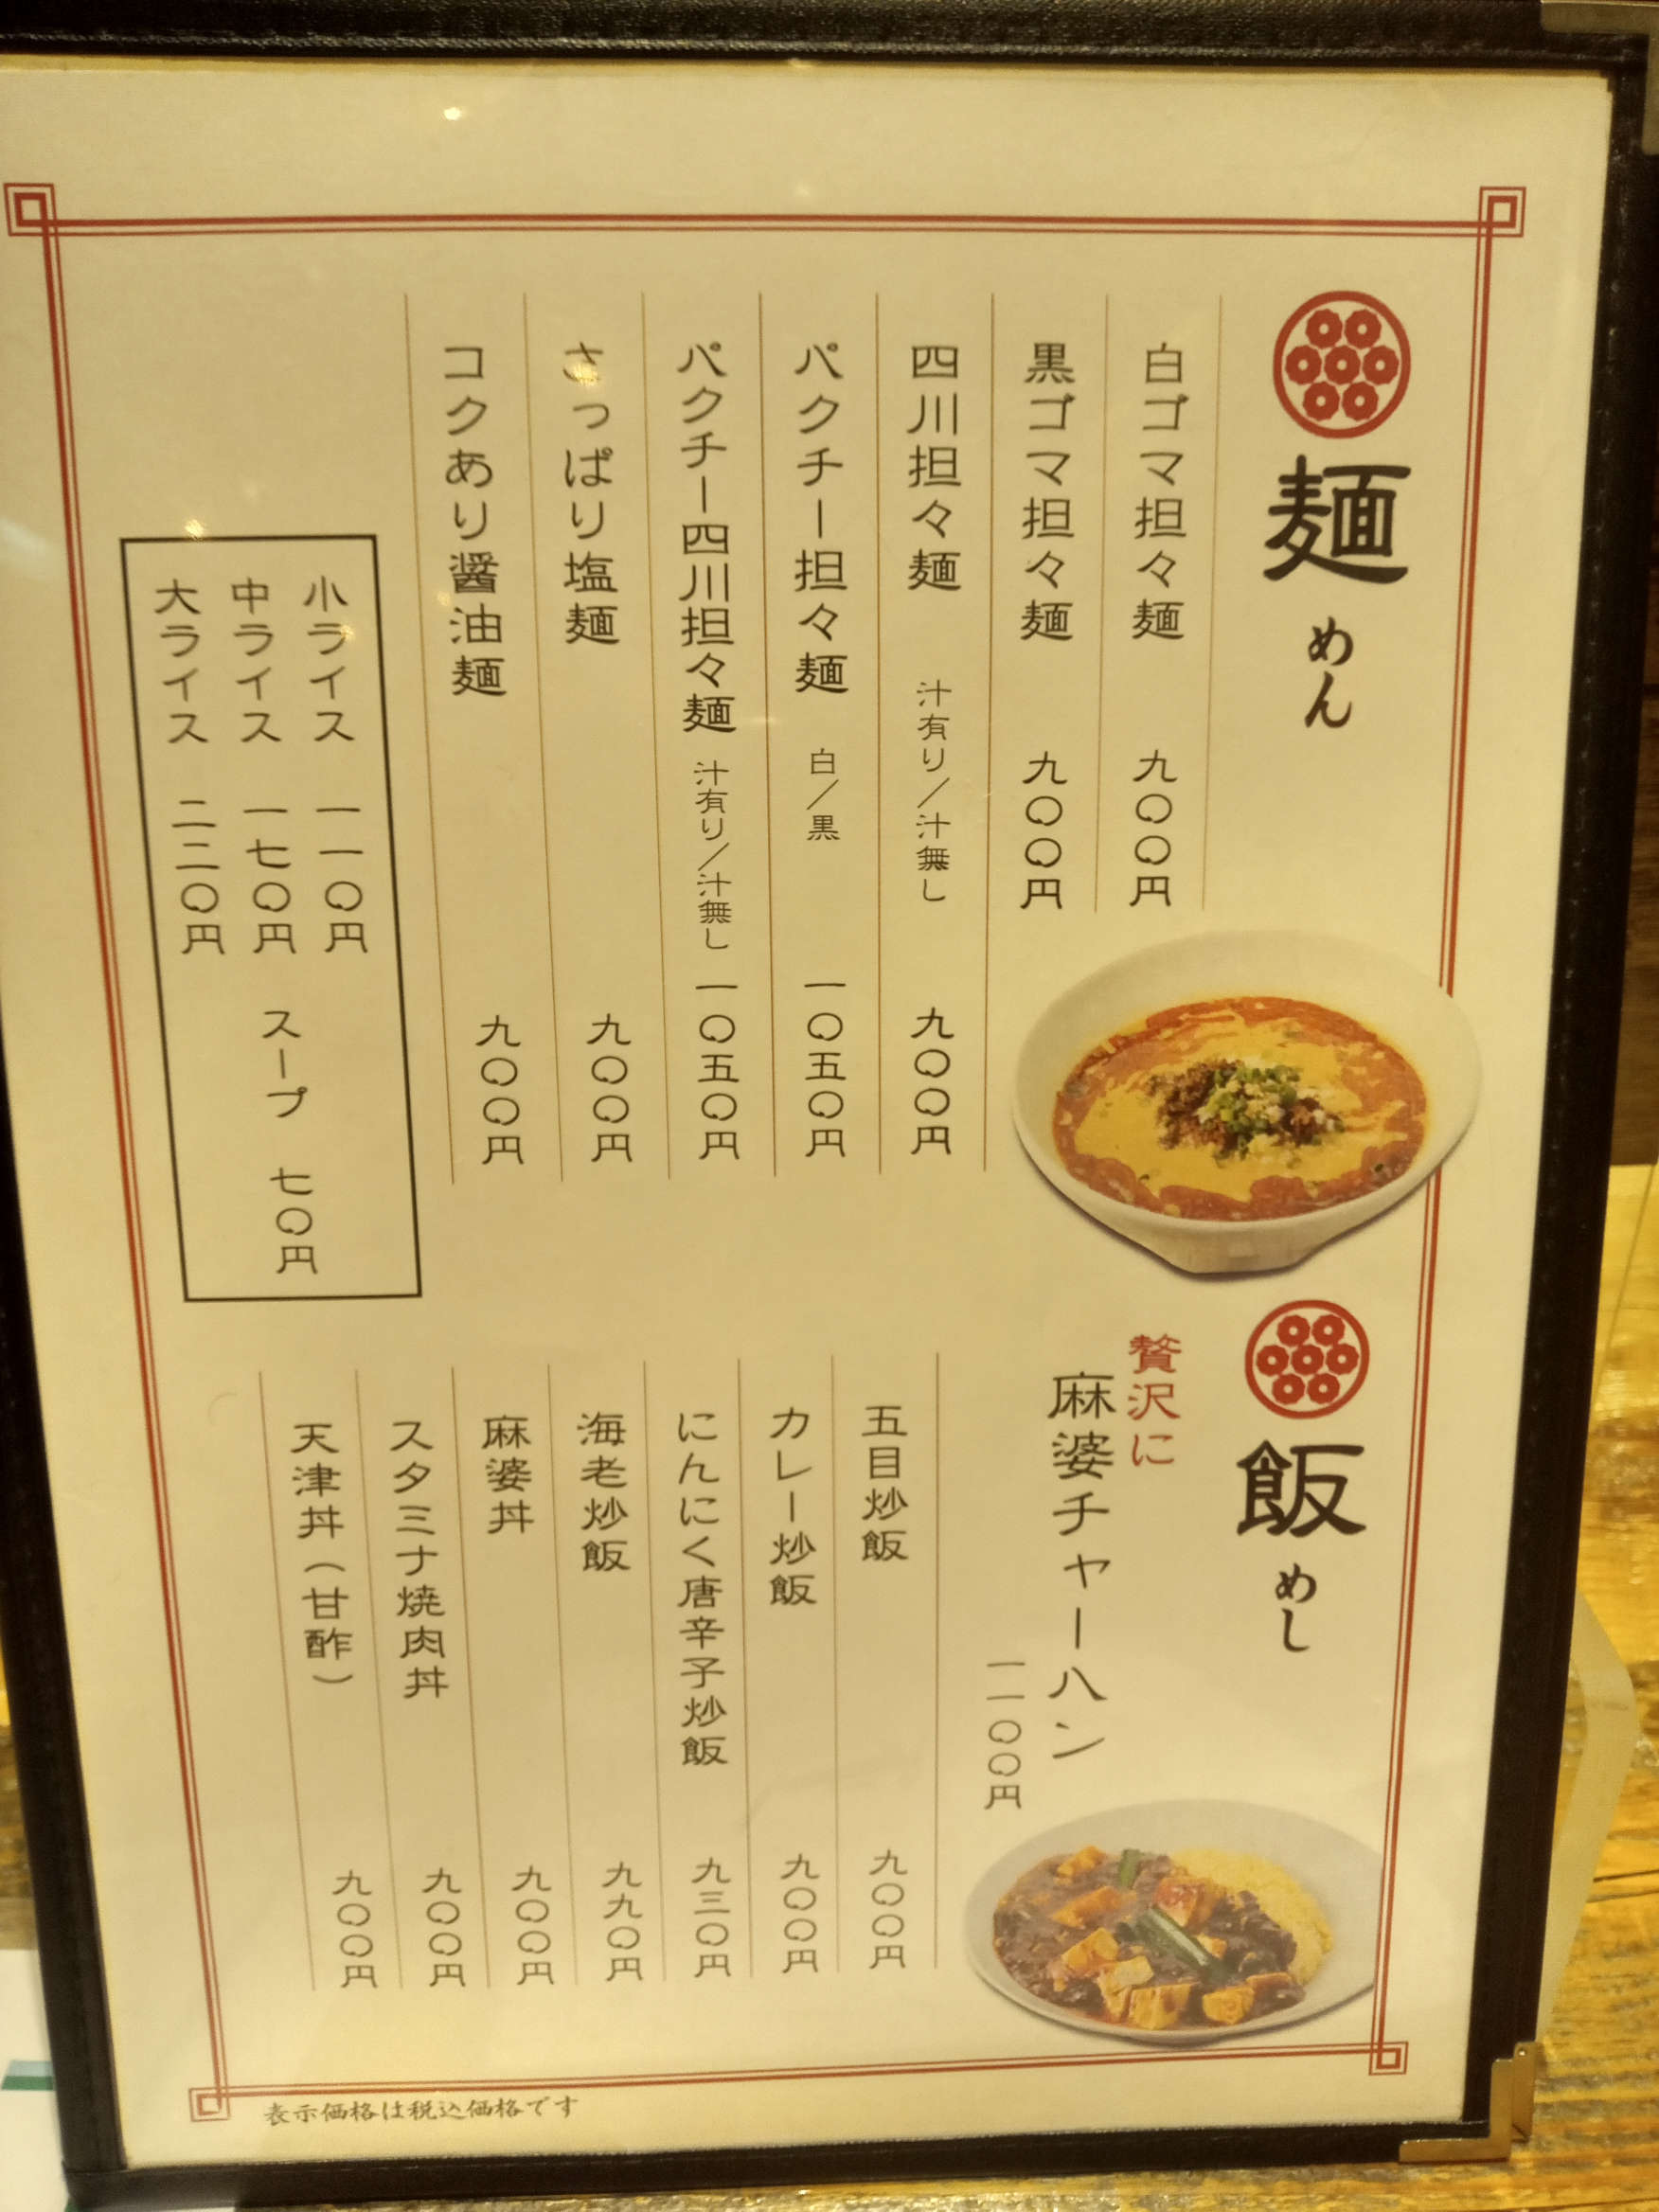 麺 めん
白ゴマ担々麺 九〇〇円
黒ゴマ担々麺 九〇〇円
四川担々麺 汁有り/汁無し 九〇〇円
パクチー担々麺 白/黒 一〇五〇円
パクチー四川担々麺 汁有り/汁無し 一〇五〇円
さっぱり塩麺 九〇〇円
コクあり醤油麺 九〇〇円
小ライス 一一〇円
中ライス 一七〇円
大ライス 二二〇円
スープ 七〇円
飯 めし
贅沢に
麻婆チャーハン
一一〇〇円
五目炒飯 九〇〇円
カレー炒飯 九〇〇円
にんにく唐辛子炒飯 九三〇円
海老炒飯 九九〇円
麻婆丼 九〇〇円
スタミナ焼肉丼 九〇〇円
天津丼(甘酢) 九〇〇円
表示価格は税込価格です